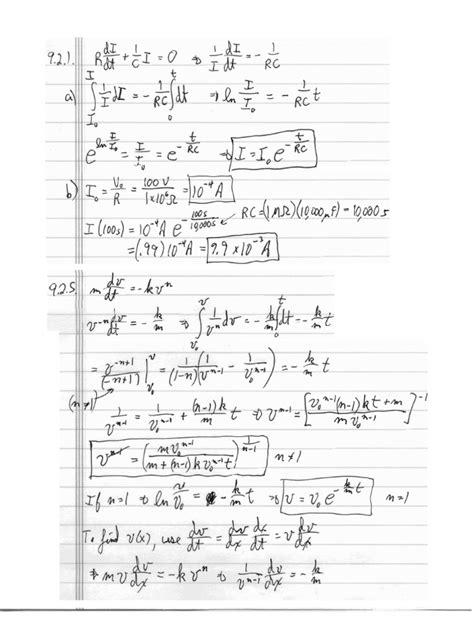 9.2.1. R dI/dt + 1/C I = 0 ⇒ 1/I dI/dt = - 1/RC
a) ∫_{I₀}^{I} 1/I dI = - 1/RC ∫_{0}^{t} dt ⇒ ln I/I₀ = - 1/RC t
e^{ln I/I₀} = I/I₀ = e^{-t/RC} ⇒ I = I₀ e^{-t/RC}
b) I₀ = V₀/R = 100 V / 1×10⁶ Ω = 10⁻⁴ A
I(100s) = 10⁻⁴ A e^{-100s/10,000s} ← RC = (1 MΩ)(10,000 μF) = 10,000 s
= (.99) 10⁻⁴ A = 9.9 × 10⁻³ A
9.2.5. m dv/dt = -k vⁿ
v⁻ⁿ dv/dt = - k/m ⇒ ∫_{v₀}^{v} 1/vⁿ dv = - k/m ∫_{0}^{t} dt = - k/m t
= v^{-n+1}/(-n+1) |_{v₀}^{v} = 1/(1-n) (1/v^{n-1} - 1/v₀^{n-1}) = - k/m t
(n≠1)
1/v^{n-1} = 1/v₀^{n-1} + (n-1)k/m t ⇒ v^{n-1} = [v₀^{n-1}(n-1)kt + m / m v₀^{n-1}]⁻¹
v = (m v₀^{n-1} / m + (n-1) k v₀^{n-1} t)^{1/n-1} n ≠ 1
If n=1 ⇒ ln v/v₀ = - k/m t ⇒ v = v₀ e^{-k/m t} n=1
To find v(x), use dv/dt = dv/dx dx/dt = v dv/dx
⇒ m v dv/dx = -k vⁿ ⇒ 1/v^{n-1} dv/dx = - k/m